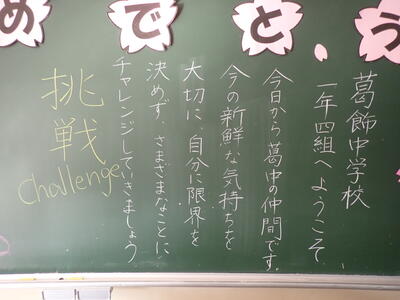 めでとう
葛飾中学校
一年四組へようこそ
今日から葛中の仲間です。
今の新鮮な気持ちを
大切に、自分に限界を
決めず、さまざまなことに
チャレンジしていきましょう
挑戦
Challenge